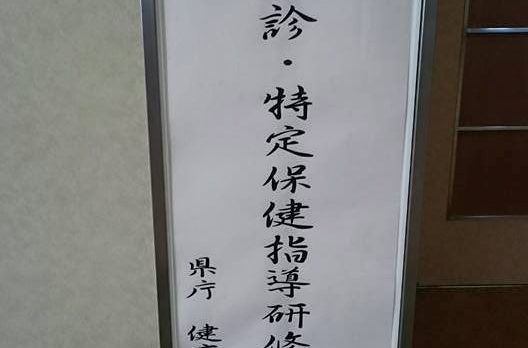 診・特定保健指導研修
県庁 健康